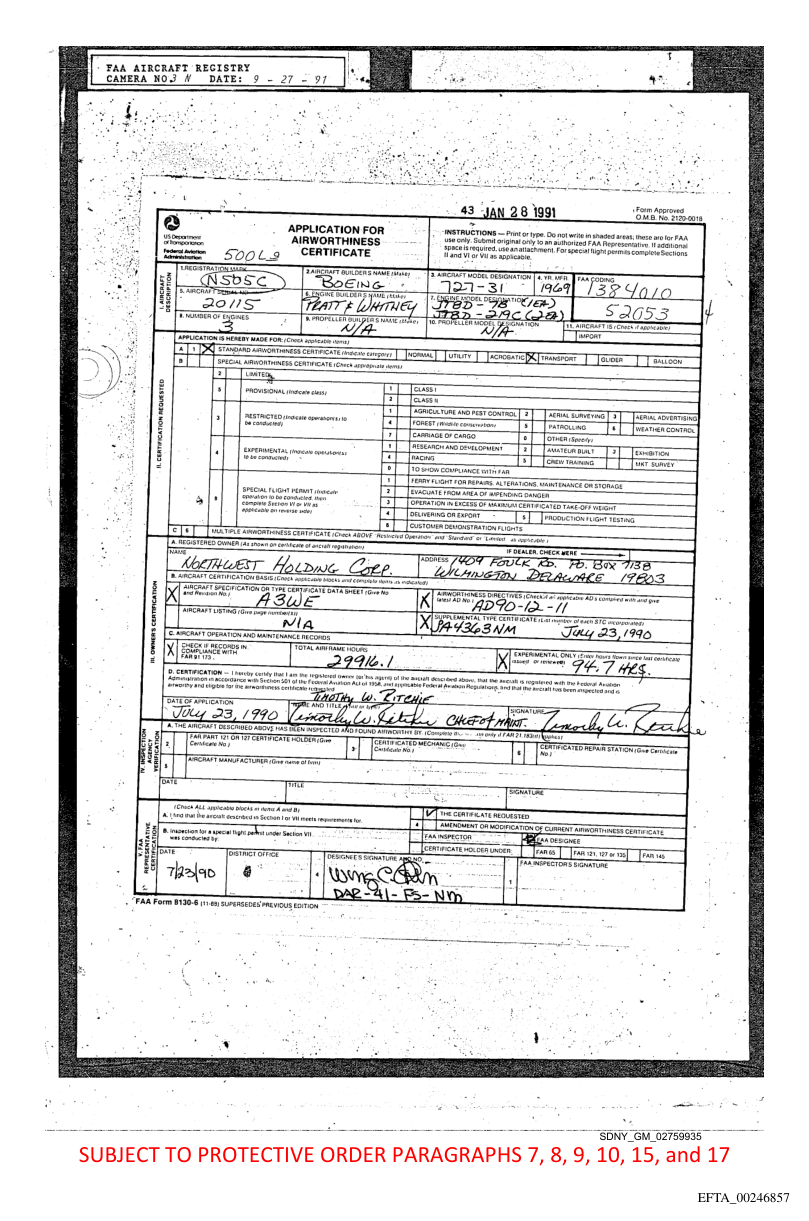 FAA AIRCRAFT REGISTRY
CAMERA NO.3 N DATE: 9 - 27 - 91
43 JAN 28 1991
Form Approved
O.M.B. No. 2120-0018
US Department
of Transportation
Federal Aviation
Administration
500L9
APPLICATION FOR
AIRWORTHINESS
CERTIFICATE
INSTRUCTIONS — Print or type. Do not write in shaded areas; these are for FAA
use only. Submit original only to an authorized FAA Representative. If additional
space is required, use an attachment. For special flight permits complete Sections
II and VI or VII as applicable.
I. AIRCRAFT DESCRIPTION
1. REGISTRATION MARK
N505C
2. AIRCRAFT BUILDER'S NAME (Make)
BOEING
3. AIRCRAFT MODEL DESIGNATION
727-31
4. YR. MFR.
1969
FAA CODING
1384010
5. AIRCRAFT SERIAL NO.
20115
6. ENGINE BUILDER'S NAME (Make)
PRATT & WHITNEY
7. ENGINE MODEL DESIGNATION
JT8D-7B (1EA)
JT8D-219C (2EA)
52053
8. NUMBER OF ENGINES
3
9. PROPELLER BUILDER'S NAME (Make)
N/A
10. PROPELLER MODEL DESIGNATION
N/A
11. AIRCRAFT IS (Check if applicable)
IMPORT
APPLICATION IS HEREBY MADE FOR: (Check applicable items)
II. CERTIFICATION REQUESTED
A 1 X STANDARD AIRWORTHINESS CERTIFICATE (Indicate category) NORMAL UTILITY ACROBATIC X TRANSPORT GLIDER BALLOON
B SPECIAL AIRWORTHINESS CERTIFICATE (Check appropriate items)
2 LIMITED
5 PROVISIONAL (Indicate class) 1 CLASS I
2 CLASS II
3 RESTRICTED (Indicate operation(s) to be conducted)
1 AGRICULTURE AND PEST CONTROL 2 AERIAL SURVEYING 3 AERIAL ADVERTISING
4 FOREST (Wildlife conservation) 5 PATROLLING 6 WEATHER CONTROL
7 CARRIAGE OF CARGO 0 OTHER (Specify)
4 EXPERIMENTAL (Indicate operation(s) to be conducted)
1 RESEARCH AND DEVELOPMENT 2 AMATEUR BUILT 3 EXHIBITION
4 RACING 5 CREW TRAINING MKT SURVEY
0 TO SHOW COMPLIANCE WITH FAR
8 SPECIAL FLIGHT PERMIT (Indicate operation to be conducted, then complete Section VI or VII as applicable on reverse side)
1 FERRY FLIGHT FOR REPAIRS, ALTERATIONS, MAINTENANCE OR STORAGE
2 EVACUATE FROM AREA OF IMPENDING DANGER
3 OPERATION IN EXCESS OF MAXIMUM CERTIFICATED TAKE-OFF WEIGHT
4 DELIVERING OR EXPORT 5 PRODUCTION FLIGHT TESTING
6 CUSTOMER DEMONSTRATION FLIGHTS
C 6 MULTIPLE AIRWORTHINESS CERTIFICATE (Check ABOVE "Restricted Operation" and "Standard" or "Limited" as applicable)
III. OWNER'S CERTIFICATION
A. REGISTERED OWNER (As shown on certificate of aircraft registration) IF DEALER, CHECK HERE
NAME
NORTHWEST HOLDING CORP.
ADDRESS 1409 FOULK RD. P.O. BOX 7138
WILMINGTON DELAWARE 19803
B. AIRCRAFT CERTIFICATION BASIS (Check applicable blocks and complete items as indicated)
X AIRCRAFT SPECIFICATION OR TYPE CERTIFICATE DATA SHEET (Give No and Revision No.)
A3WE
X AIRWORTHINESS DIRECTIVES (Check if all applicable AD's complied with and give latest AD No.)
AD90-12-11
AIRCRAFT LISTING (Give page number(s))
N/A
X SUPPLEMENTAL TYPE CERTIFICATE (List number of each STC incorporated)
PA4363NM JULY 23, 1990
C. AIRCRAFT OPERATION AND MAINTENANCE RECORDS
X CHECK IF RECORDS IN COMPLIANCE WITH FAR 91.173
TOTAL AIRFRAME HOURS
29916.1
X EXPERIMENTAL ONLY (Enter hours flown since last certificate issued or renewed)
94.7 HRS.
D. CERTIFICATION — I hereby certify that I am the registered owner (or his agent) of the aircraft described above, that the aircraft is registered with the Federal Aviation
Administration in accordance with Section 501 of the Federal Aviation Act of 1958, and applicable Federal Aviation Regulations, and that the aircraft has been inspected and is
airworthy and eligible for the airworthiness certificate requested
DATE OF APPLICATION
JULY 23, 1990
TIMOTHY W. RITCHIE
NAME AND TITLE (Print or type)
Timothy W. Ritchie CHIEF OF MAINT.
SIGNATURE
Timothy W. Ritchie
IV. INSPECTION AGENCY VERIFICATION
A. THE AIRCRAFT DESCRIBED ABOVE HAS BEEN INSPECTED AND FOUND AIRWORTHY BY: (Complete only if FAR 21.183(d) applies)
2 FAR PART 121 OR 127 CERTIFICATE HOLDER (Give Certificate No.)
3 CERTIFICATED MECHANIC (Give Certificate No.)
6 CERTIFICATED REPAIR STATION (Give Certificate No.)
5 AIRCRAFT MANUFACTURER (Give name of firm)
DATE TITLE SIGNATURE
V. FAA REPRESENTATIVE CERTIFICATION
(Check ALL applicable blocks in items A and B)
A. I find that the aircraft described in Section I or VII meets requirements for
THE CERTIFICATE REQUESTED
4 AMENDMENT OR MODIFICATION OF CURRENT AIRWORTHINESS CERTIFICATE
B. Inspection for a special flight permit under Section VII was conducted by:
FAA INSPECTOR FAA DESIGNEE
CERTIFICATE HOLDER UNDER: FAR 65 FAR 121, 127 or 135 FAR 145
DATE
7/23/90
DISTRICT OFFICE
DESIGNEE'S SIGNATURE AND NO.
DAR-41-FS-NM
FAA INSPECTOR'S SIGNATURE
FAA Form 8130-6 (11-88) SUPERSEDES PREVIOUS EDITION
SDNY_GM_02759935
SUBJECT TO PROTECTIVE ORDER PARAGRAPHS 7, 8, 9, 10, 15, and 17
EFTA_00246857